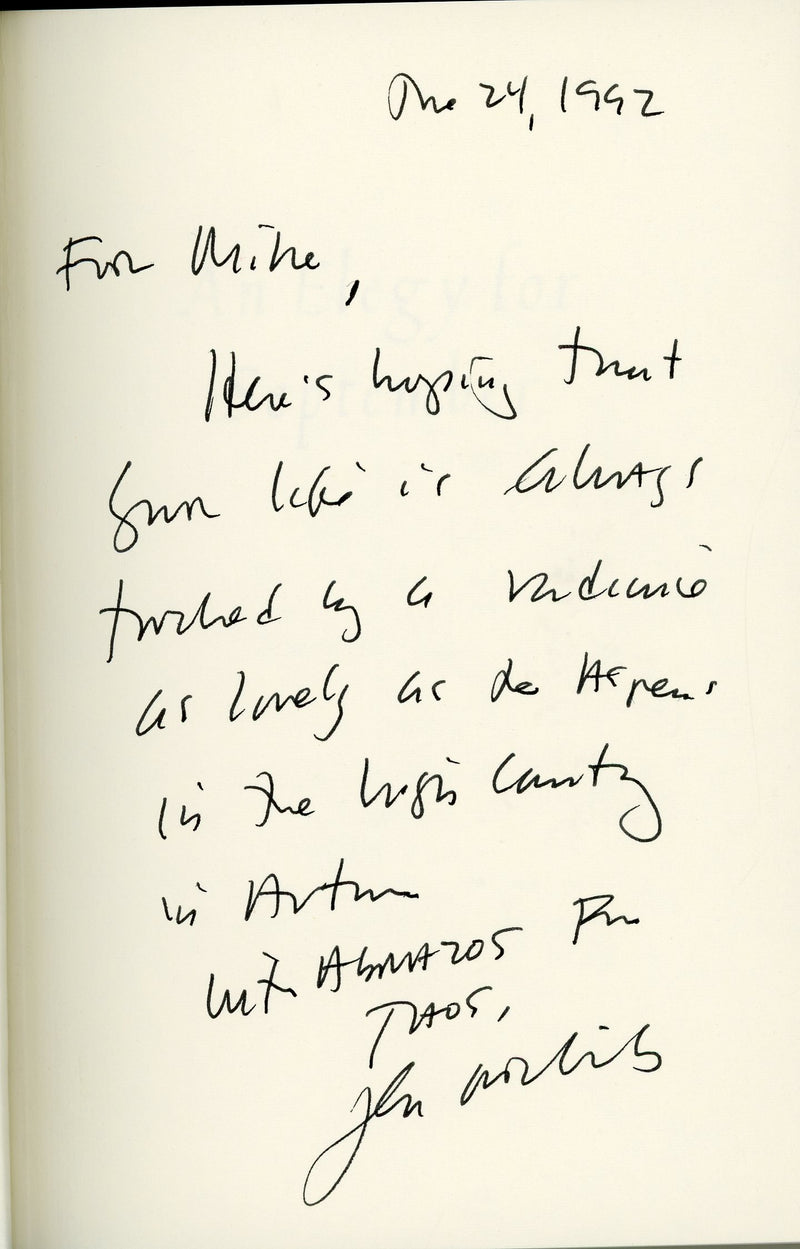 June 24, 1992
For Mike,
Here's hoping that
your life is always
touched by a radiance
as lovely as de Aspens
in the high country
in Autumn
with ABRAZOS from
TAOS,
John Nichols
An Elegy for
September